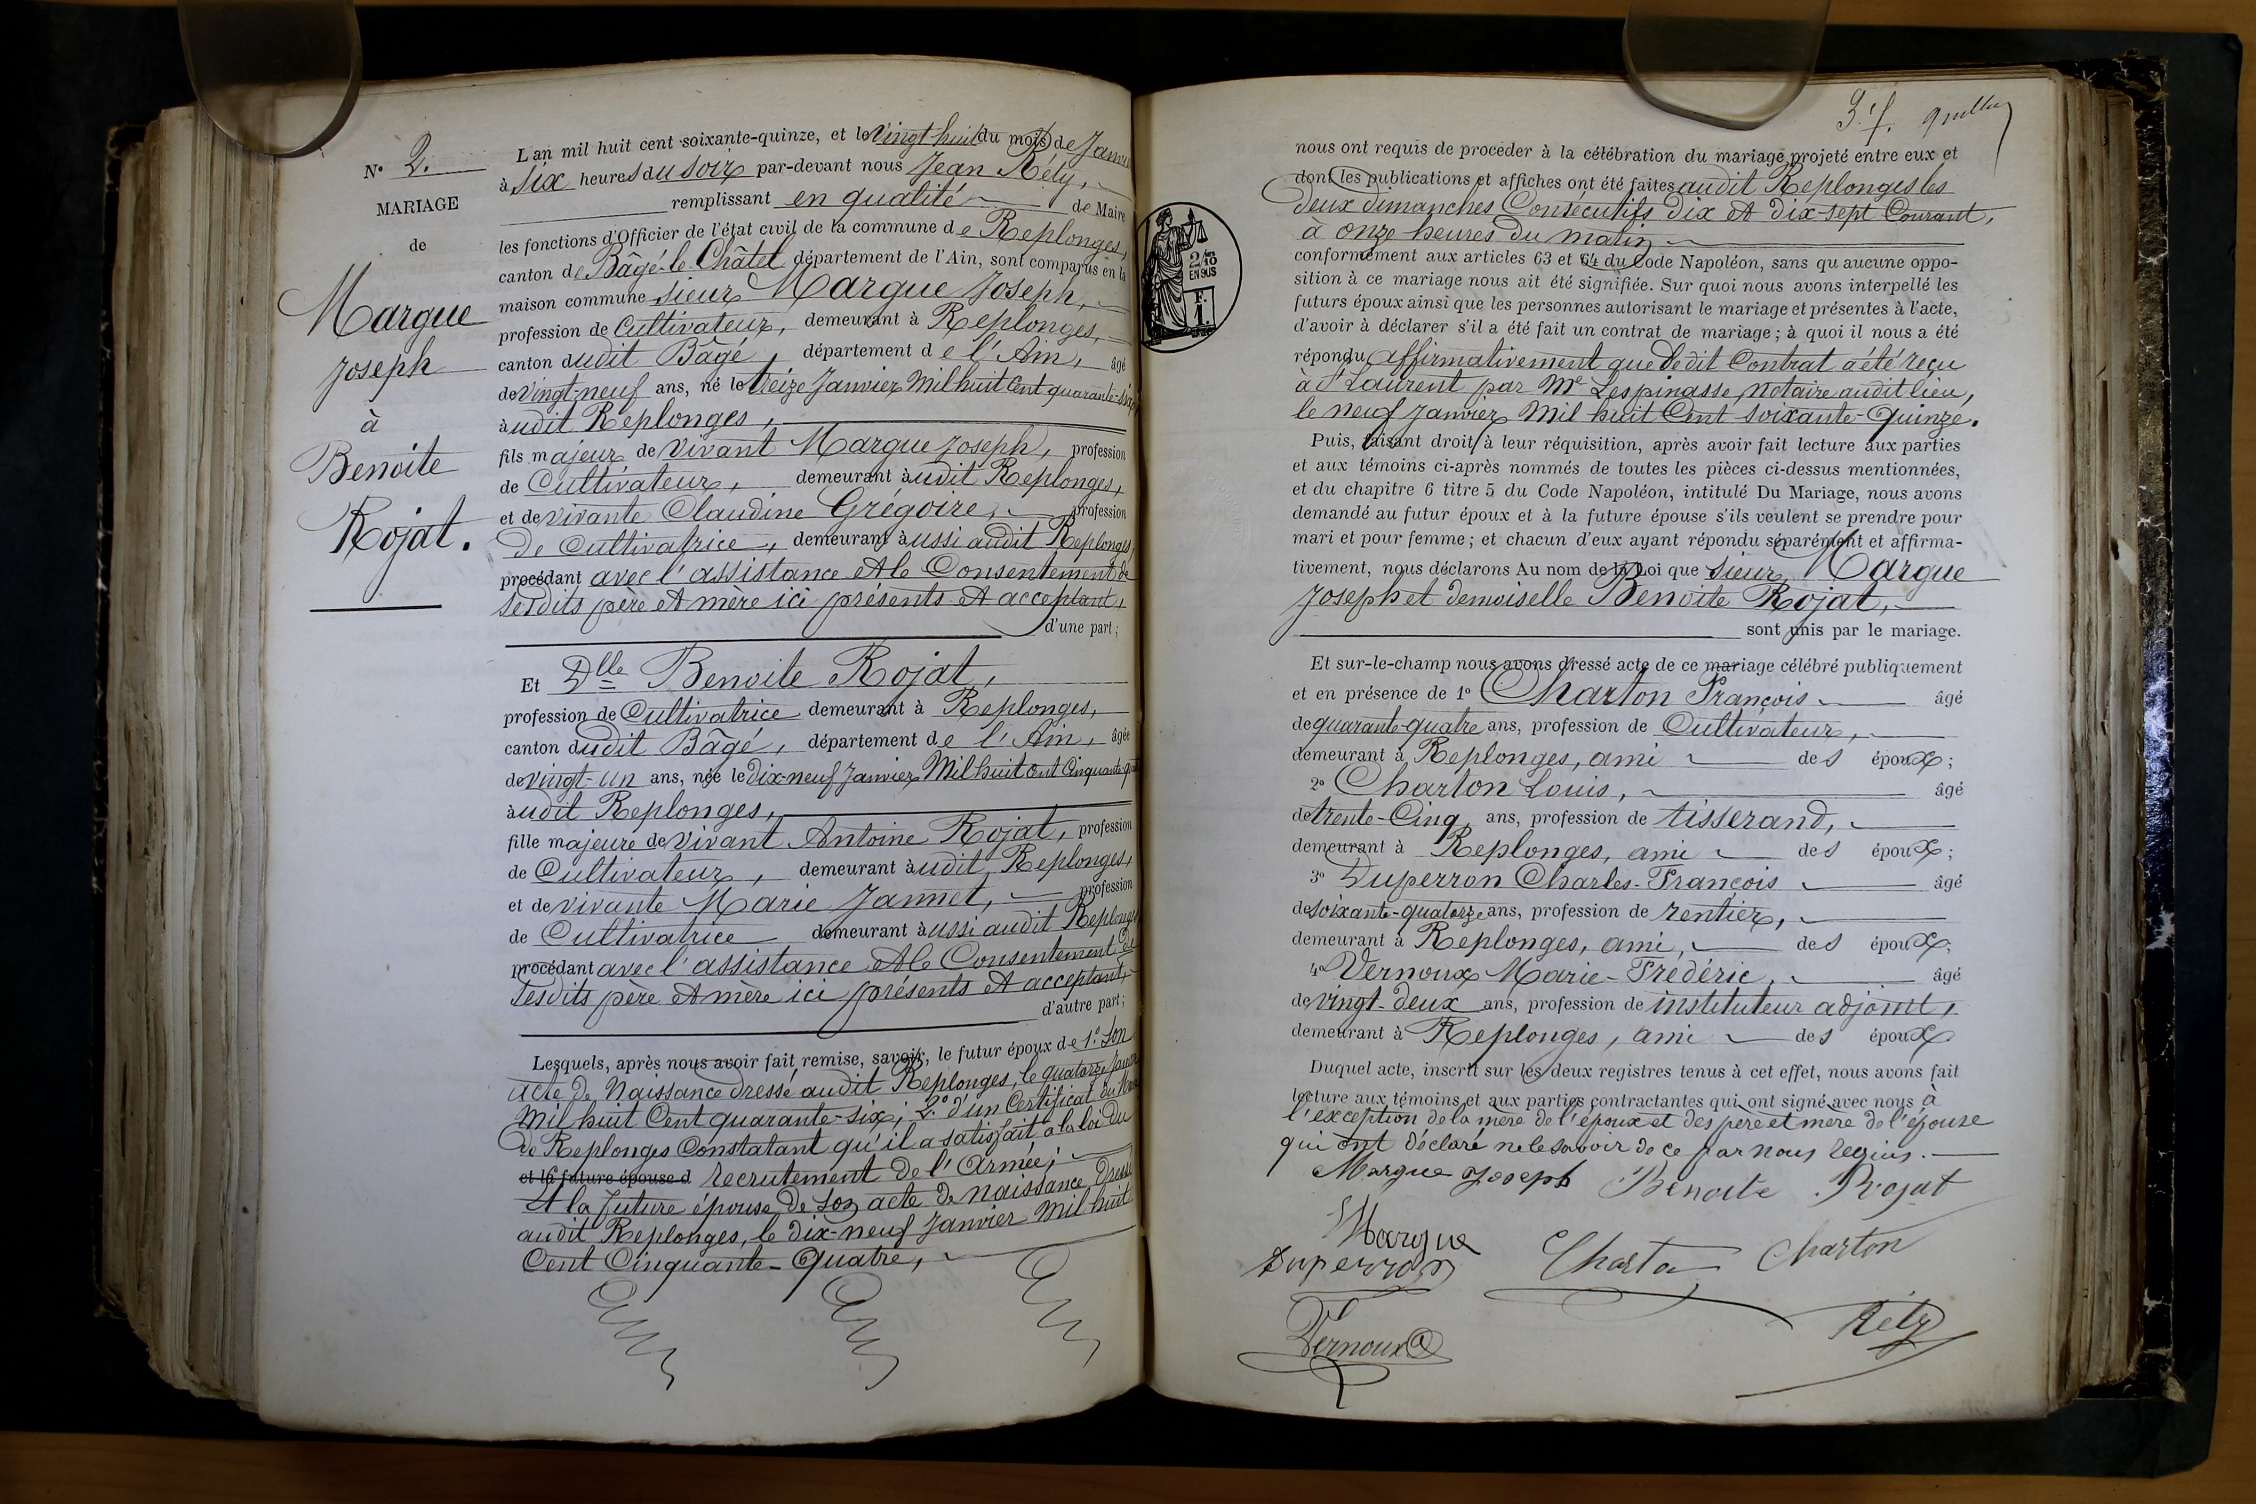 N° 2.
MARIAGE
de
Margue
Joseph
à
Benoite
Rojat.
L'an mil huit cent soixante-quinze, et le vingt huit du mois de Janvier
à six heures du soir par-devant nous Jean Réty,
remplissant en qualité de Maire
les fonctions d'Officier de l'état civil de la commune de Replonges,
canton de Bâgé-le-Châtel département de l'Ain, sont comparus en la
maison commune sieur Margue Joseph,
profession de Cultivateur, demeurant à Replonges,
canton dudit Bâgé, département de l'Ain, âgé
de vingt-neuf ans, né le treize Janvier Mil huit Cent quarante-six
audit Replonges,
fils majeur de vivant Margue Joseph, profession
de Cultivateur, demeurant audit Replonges,
et de vivante Claudine Grégoire, profession
de Cultivatrice, demeurant aussi audit Replonges,
procédant avec l'assistance et le Consentement de
sesdits père et mère ici présents et acceptant,
d'une part;
Et Dlle Benoite Rojat,
profession de Cultivatrice demeurant à Replonges,
canton dudit Bâgé, département de l'Ain, âgée
de vingt-un ans, née le dix-neuf Janvier Mil huit Cent Cinquante-quatre
audit Replonges,
fille majeure de vivant Antoine Rojat, profession
de Cultivateur, demeurant audit Replonges,
et de vivante Marie Jannet, profession
de Cultivatrice demeurant aussi audit Replonges
procédant avec l'assistance et le Consentement de
sesdits père et mère ici présents et acceptant,
d'autre part;
Lesquels, après nous avoir fait remise, savoir, le futur époux de 1° son
acte de Naissance dressé audit Replonges, le quatorze Janvier
Mil huit Cent quarante-six; 2° d'un Certificat du Maire
de Replonges Constatant qu'il a satisfait à la loi du
et la future épouse d recrutement de l'Armée;
Et la future épouse de son acte de naissance dressé
audit Replonges, le dix-neuf Janvier Mil huit
Cent Cinquante-Quatre,
2/10
EN SUS
F.
1.
3.f.
nous ont requis de procéder à la célébration du mariage projeté entre eux et
dont les publications et affiches ont été faites audit Replonges les
deux dimanches Consécutifs dix et dix-sept Courant,
à onze heures du matin
conformément aux articles 63 et 64 du Code Napoléon, sans qu'aucune oppo-
sition à ce mariage nous ait été signifiée. Sur quoi nous avons interpellé les
futurs époux ainsi que les personnes autorisant le mariage et présentes à l'acte,
d'avoir à déclarer s'il a été fait un contrat de mariage; à quoi il nous a été
répondu affirmativement que ledit Contrat a été reçu
à St Laurent par Me Lespinasse, Notaire audit lieu,
le neuf Janvier Mil huit Cent soixante-Quinze.
Puis, faisant droit à leur réquisition, après avoir fait lecture aux parties
et aux témoins ci-après nommés de toutes les pièces ci-dessus mentionnées,
et du chapitre 6 titre 5 du Code Napoléon, intitulé Du Mariage, nous avons
demandé au futur époux et à la future épouse s'ils veulent se prendre pour
mari et pour femme; et chacun d'eux ayant répondu séparément et affirma-
tivement, nous déclarons Au nom de la Loi que sieur Margue
Joseph et demoiselle Benoite Rojat,
sont unis par le mariage.
Et sur-le-champ nous avons dressé acte de ce mariage célébré publiquement
et en présence de 1° Charton François âgé
de quarante-quatre ans, profession de Cultivateur,
demeurant à Replonges, ami des époux;
2° Charton Louis, âgé
de trente-Cinq ans, profession de tisserand,
demeurant à Replonges, ami des époux;
3° Duperron Charles-François âgé
de soixante-quatorze ans, profession de rentier,
demeurant à Replonges, ami, des époux;
4° Vernoux Marie-Frédéric, âgé
de vingt-deux ans, profession de instituteur adjoint,
demeurant à Replonges, ami des époux
Duquel acte, inscrit sur les deux registres tenus à cet effet, nous avons fait
lecture aux témoins et aux parties contractantes qui ont signé avec nous à
l'exception de la mère de l'époux et des père et mère de l'épouse
qui ont déclaré ne le savoir de ce par nous requis.
Margue Joseph Benoite Rojat
Margue
Duperron Charton Charton
Vernoux Réty